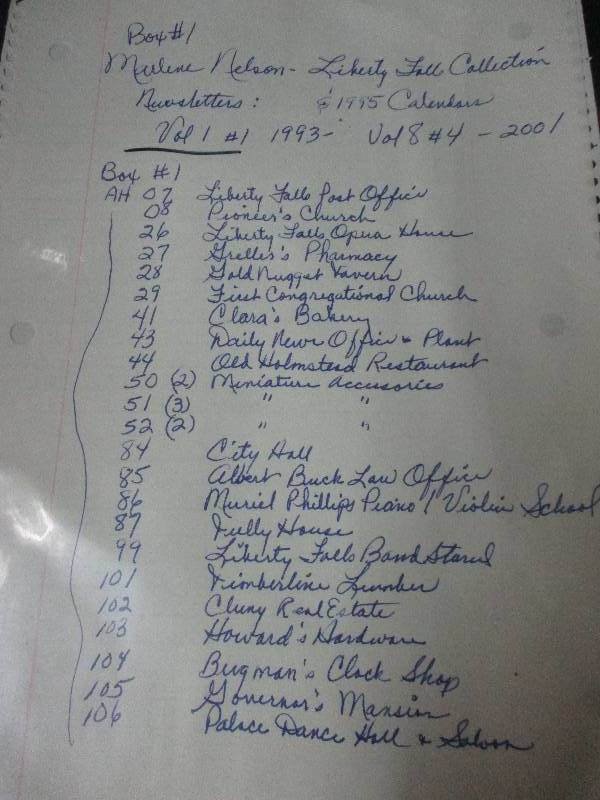 Box #1
Marlene Nelson - Liberty Fall Collection
Newsletters: & 1995 Calendars
Vol 1 #1 1993 - Vol 8 #4 - 2001
Box #1
AH 07 Liberty Falls Post Office
08 Pioneer's Church
26 Liberty Falls Opera House
27 Grellis's Pharmacy
28 Gold Nugget Tavern
29 First Congregational Church
41 Clara's Bakery
43 Daily News Office & Plant
44 Old Holmstead Restaurant
50 (2) Miniature Accusories
51 (3) " "
52 (2) " "
84 City Hall
85 Albert Buck Law Office
86 Muriel Phillips Piano / Violin School
87 Tully House
99 Liberty Falls Band Stand
101 Timberline Lumber
102 Cluny Real Estate
103 Howard's Hardware
104 Bugman's Clock Shop
105 Governor's Mansion
106 Palace Dance Hall & Saloon